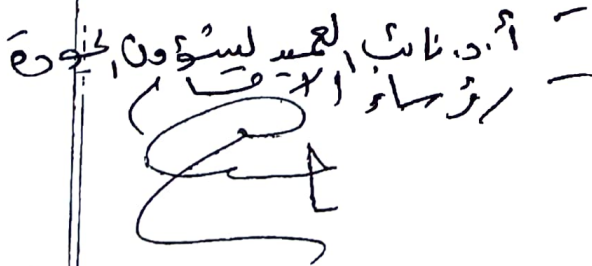 - أ.د. نائب العميد لشؤون الجودة
- رؤساء الأقسام